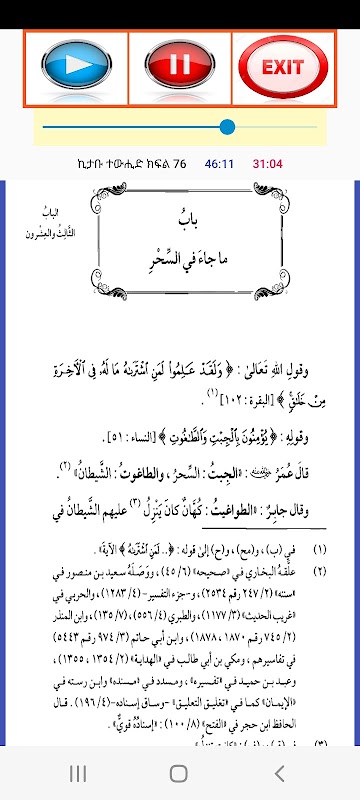 EXIT
ኪታቡ ተውሒድ ክፍል 76 46:11 31:04
البابُ
الثَّالِثُ والعِشْرون
بابُ
ما جاءَ في السِّحْرِ
وقولِ اللهِ تَعَالىٰ : ﴿ وَلَقَدْ عَلِمُوا۟ لَمَنِ ٱشْتَرَىٰهُ مَا لَهُۥ فِى ٱلْءَاخِرَةِ
مِنْ خَلَٰقٍ ﴾ [البقرة : ١٠٢] (١) .
وقولِهِ : ﴿ يُؤْمِنُونَ بِٱلْجِبْتِ وَٱلطَّٰغُوتِ ﴾ [النساء : ٥١] .
قالَ عُمَرُ : «الجِبتُ : السِّحرُ ، والطاغوتُ : الشَّيطانُ» (٢) .
وقال جابِرٌ : «الطواغيتُ : كُهَّانٌ كانَ يَنْزِلُ (٣) عليهم الشَّيطانُ في
(١) في (ب) ، و(مح) ، و(ح) إلىٰ قوله : ﴿ .. لَمَنِ ٱشْتَرَىٰهُ ﴾ الآيةَ» .
(٢) علَّقهُ البخاري في «صحيحه» (٦/ ٤٥) ، ووَصَلَهُ سعيد بن منصور في
«سننه» (٢/ ٢٤٧ رقم ٢٥٣٤، و-جزء التفسير- ٤/ ١٢٨٣) ، والحربي في
«غريب الحديث» (٣/ ١١٧٧) ، والطبري (٤/ ٥٥٦) ، (٧/ ١٣٥) ، وابن المنذر
(٢/ ٧٤٥ رقم ١٨٧٠ ، ١٨٧٨) ، وابن أبي حاتم (٣/ ٩٧٤ رقم ٥٤٤٣)
في تفاسيرهم ، ومكي بن أبي طالب في «الهداية» (٢/ ١٣٥٤ ، ١٣٥٥) ،
وعبد بن حميد في «تفسيره» ، ومسدد في «مسنده» وابن رسته في
«الإيمان» كما في «تغليق التعليق» -وساق إسناده- (٤/ ١٩٦) . قال
الحافظ ابن حجر في «الفتح» (٨/ ١٠٠) : «إسنادُهُ قويٌّ» .